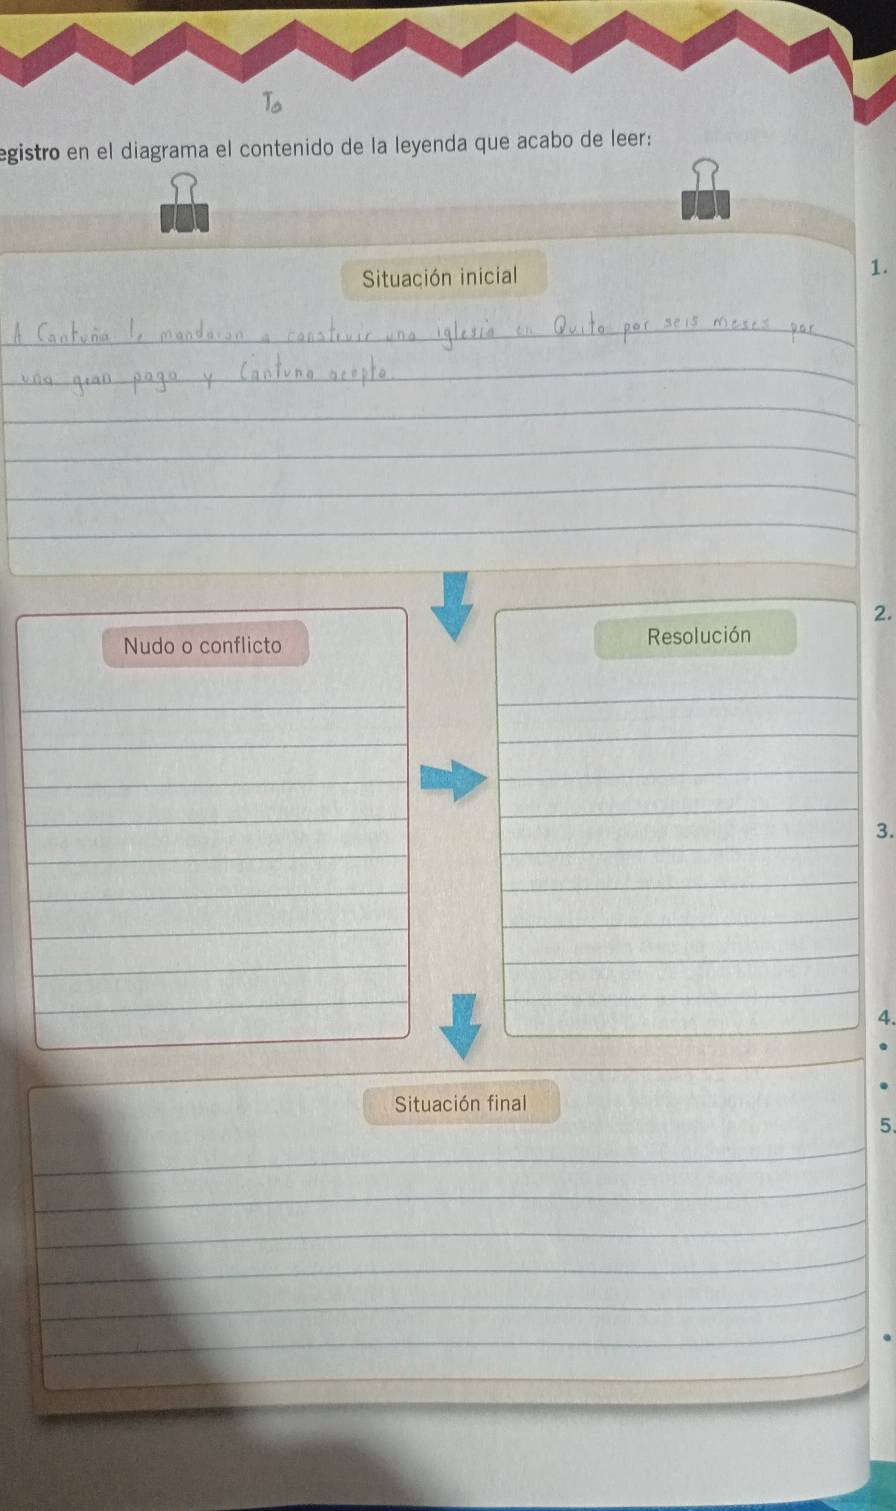 To
egistro en el diagrama el contenido de la leyenda que acabo de leer:
Situación inicial
1.
A Cantuña le mandaron a construir una iglesia en Quito por seis meses por
una gran paga y Cantuna acepto.
2.
Nudo o conflicto
Resolución
3.
4.
Situación final
5.